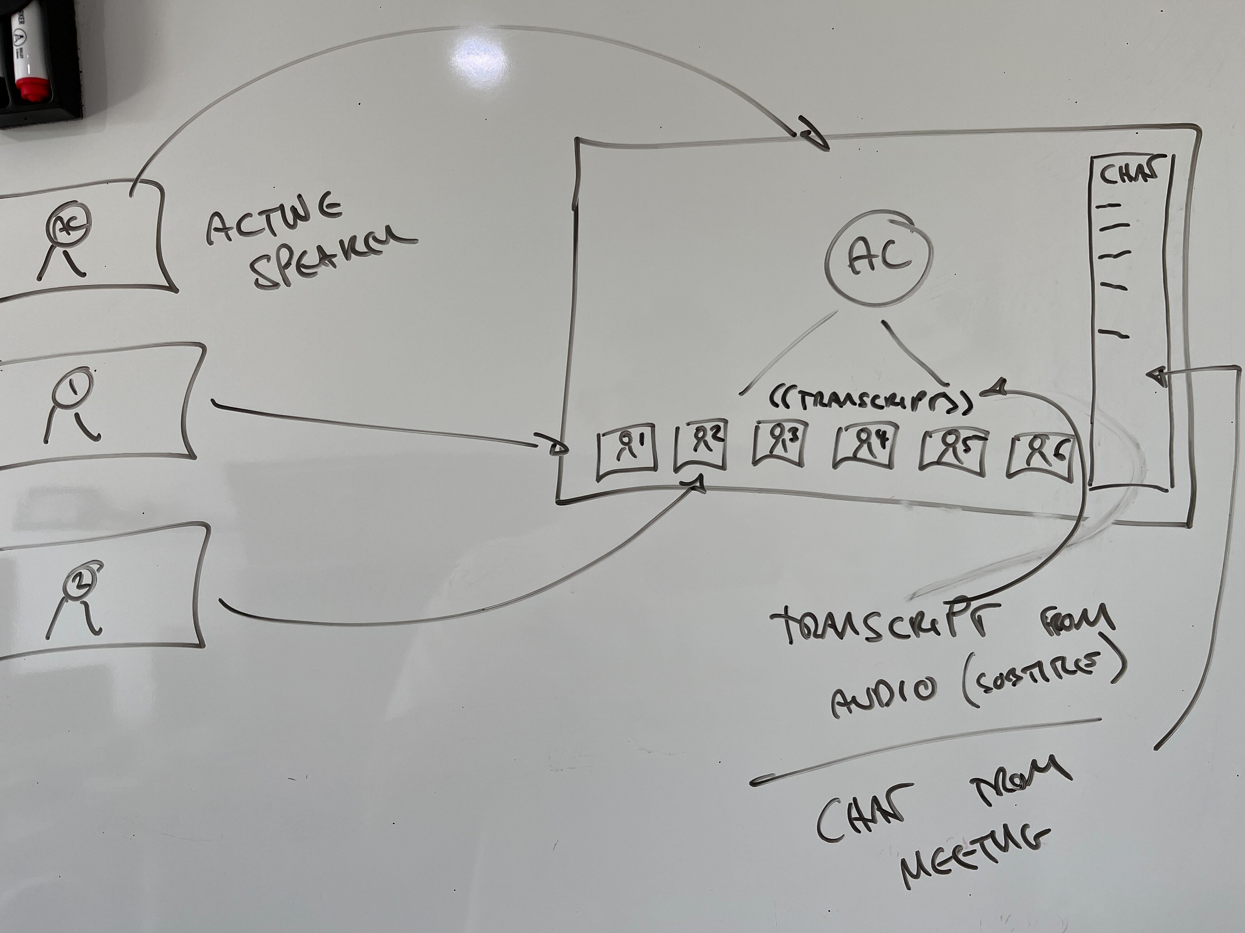 AC
ACTIVE
SPEAKER
1
2
CHAT
AC
((TRANSCRIPTS))
1 2 3 4 5 6
TRANSCRIPT FROM
AUDIO (SUBTITLE)
CHAT FROM
MEETING